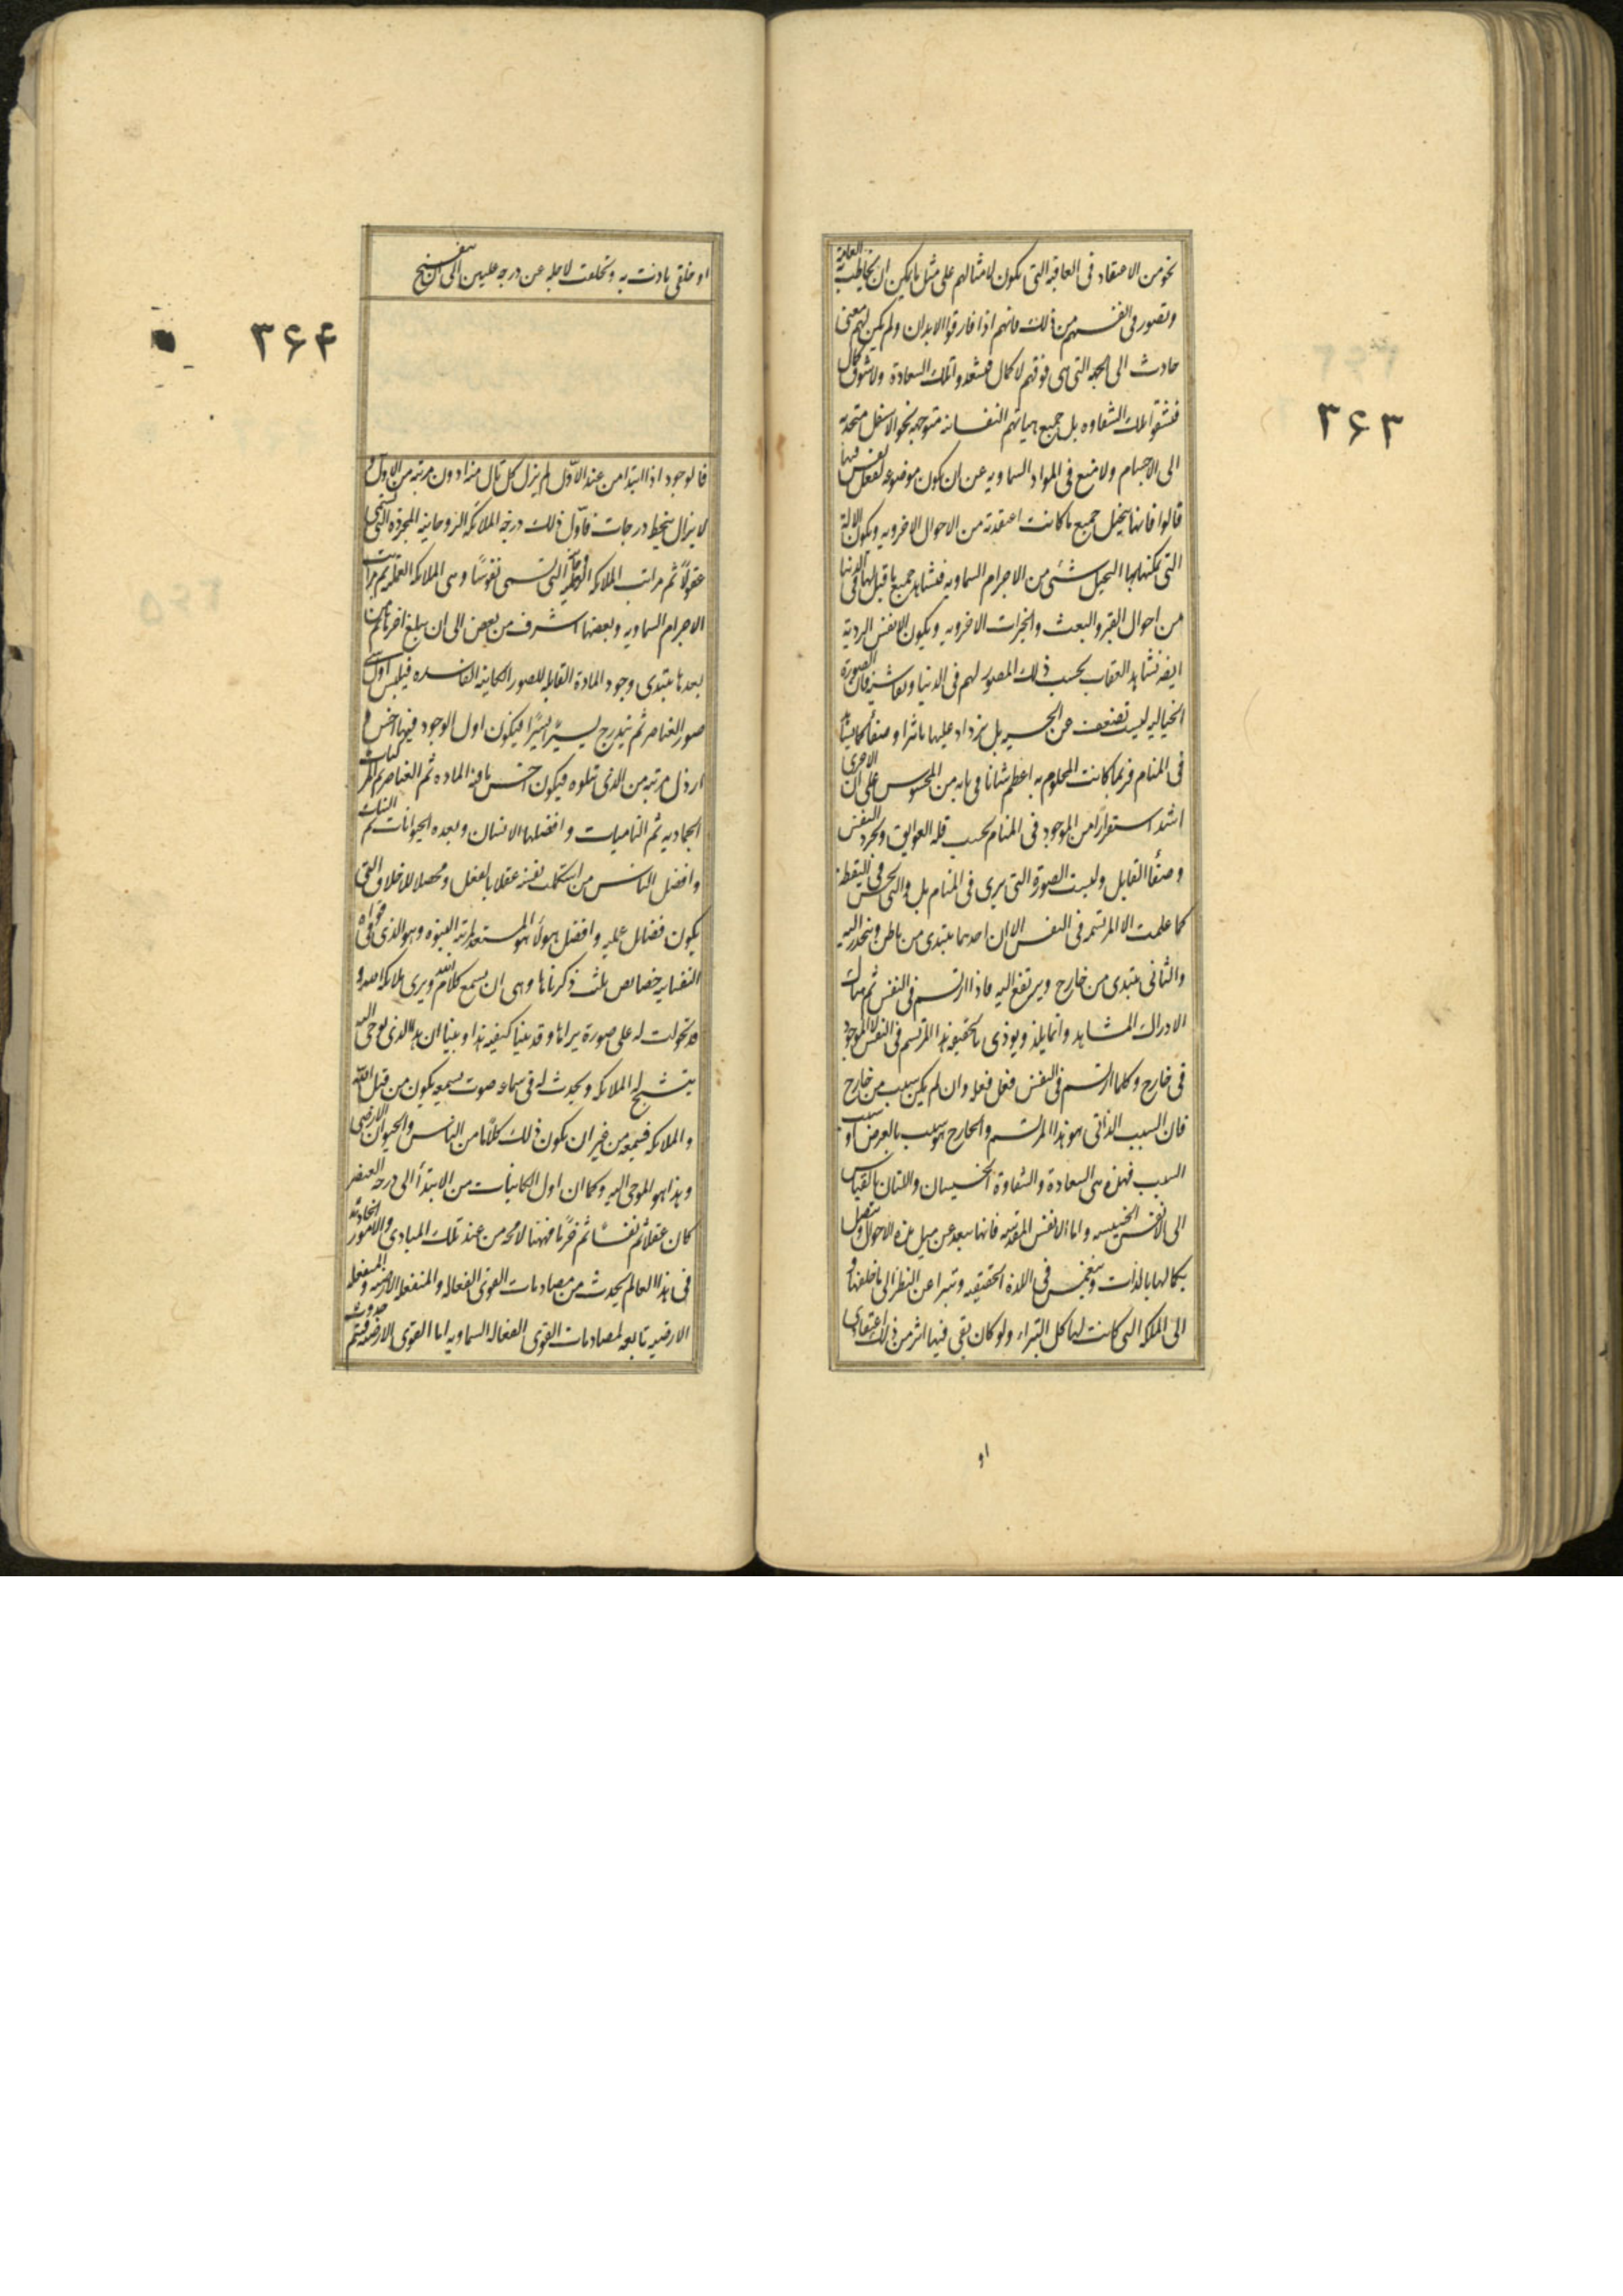 نحو من الاعتقاد فى العاقبه التى يكون لامثالهم على مثل ما يمكن ان يخاطب العامة
و تصور فى انفسهم من ذلك فانهم اذا فارقوا الابدان و لم يكن لهم معنى
حادث الى الجهه التى هى فوقهم لا كمال فتسعدوا تلك السعادة و لا شوق كمال
فتشقوا تلك الشقاوه بل جميع هيأتهم النفسانيه متوجهه نحو الاسفل منجذبه
الى الاجسام و لا منع فى المواد السماويه عن ان يكون موضوعه لفعل نفس فيها
قالوا فانها يتخيل جميع ما كانت اعتقدته من الاحوال الاخرويه و يكون الالة
التى يمكنها بها التخيل شئ من الاجرام السماويه فتشاهد جميع ما قيل لها فى الدنيا
من احوال القبر و البعث و الخيرات الاخرويه و يكون الانفس الرديه
ايضه تشاهد العقاب بحسب ذلك المصور لهم فى الدنيا و تقاسيه فان الصورة
الخياليه ليست تضعف عن الحسيه بل يزداد عليها تاثيرا و صفأ كما يشاهد
فى المنام فربما كانت المحلوم به اعظم شانا فى بابه من المحسوس على ان الاخرى
اشد استقرارا من الموجود فى المنام بحسب قله العوايق و تجرد النفس
و صفأ القابل و ليست الصورة التى يرى فى المنام بل و التى تحس فى اليقظه
كما علمت الا المرتسمه فى النفس الا ان احديهما يبتدى من باطن و ينحدر اليه
و الثانى يبتدى من خارج و يرتفع اليه فاذا ارتسم فى النفس ثم هناك
الادراك المشاهد و انما يلذ و يوذى بالحقيقه هذا المرتسم فى النفس لا الموجود
فى خارج و كلما ارتسم فى النفس فعل فعله و ان لم يكن سبب من خارج
فان السبب الذاتى هو هذا المرتسم و الخارج هو سبب بالعرض او سبب
السبب فهذه هى السعادة و الشقاوة الخسيسان و اللتان بالقياس
الى الانفس الخسيسه و اما الانفس المقدسه فانها يبعد عن ميل هذه الاحوال و تتصل
بكمالها بالذات و تنغمس فى اللذة الحقيقيه و تتبرا عن النظر الى ما خلفها و
الى المملكه التى كانت لها كل التبراء و لو كان بقى فيها اثر من ذلك اعتقادى
او
۳۶۳
او خلقى تاذت به و تخلفت لاجله عن درجه عليين الى ان ينفسخ
۳۶۴
فالوجود اذا ابتدا من عند الاول لم يزل كل تال منه ادون مرتبه من الاول و
لا يزال ينحط درجات فاول ذلك درجه الملائكه الروحانيه المجرده التى تسمى
عقولاً ثم مراتب الملائكه الروحانيه التى تسمى نفوسًا و هى الملائكه العمله ثم مراتب
الاجرام السماويه و بعضها اشرف من بعض الى ان يبلغ اخرها ثم
بعدها يبتدى وجود المادة القابله للصور الكاينه الفاسده فيلبس اول شى
صور العناصر ثم يتدرج يسيرًا يسيرًا فيكون اول الوجود فيها اخس و
ارذل مرتبه من الذى تتلوه فيكون اخس ما فيه الماده ثم العناصر ثم المركبات
الجماديه ثم الناميات و افضلها الانسان و بعده الحيوانات ثم النبات
و افضل الناس من استكملت نفسه عقلا بالفعل و محصلا للاخلاق التى
يكون فضايل عمليه و افضل هولأ هو المستعد لمرتبه النبوه و هو الذى فى قواه
النفسانيه خصايص ثلث ذكرناها و هى ان يسمع كلام الله و يرى ملائكه الله و
قد تحولت له على صورة يراها و قد بينا كيفيه هذا و بينا ان هذا الذى يوحى اليه
يتشبح له الملايكه و يحدث له فى سماعه صوت يسمعه يكون من قبل الله
و الملائكه فيسمعه من غير ان يكون ذلك كلامًا من الناس و الحيوان الارضى
و هذا هو الموحى اليه و كما ان اول الكاينات من الابتدأ الى درجه العنصر
كان عقلا ثم نفسًا ثم جرمًا فههنا لامحه من عند تلك المبادى و الامور الحادثه
فى هذا العالم يحدث من مصادمات القوى الفعاله و المنفعله الارضيه و المنفعله
الارضيه تابعه لمصادمات القوى الفعاله السماويه اما القوى الارضيه فيتم حدوث